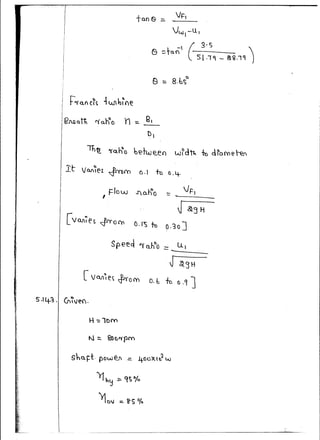 tan θ = VF₁
Vω₁-u₁
θ = tan⁻¹ ( 3.5
51.79 - 28.79 )
θ = 8.65°
Francis turbine
Breath ratio n = B₁
D₁
The ratio between width to diameter
It Varies from 0.1 to 0.4.
, Flow ratio = VF₁
√2gH
[varies from 0.15 to 0.30]
Speed ratio = u₁
√2gH
[varies from 0.6 to 0.9]
5.143. Given.
H = 70m
N = 800rpm
Shaft power = 400x10³ w
ηhy = 95%
ηov = 85%